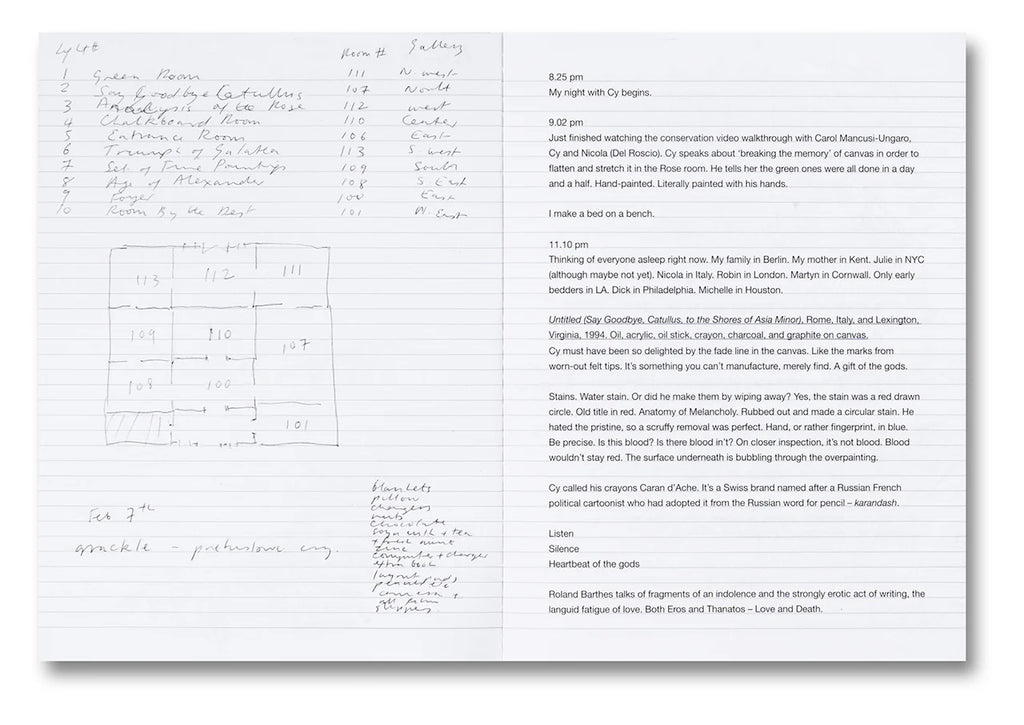 Room #   Gallery
1   Green Room   111   N. west
2   Say Goodbye Catullus   107   North
3   Analysis of the Rose   112   west
4   Chalkboard Room   110   Center
5   Entrance Room   106   East
6   Triumph of Galatea   113   S. west
7   Set of Nine Paintings   109   South
8   Age of Alexander   108   S East
9   Foyer   100   East
10   Room By the Desk   101   N. East
113   112   111
109   110
107
108   100
101
Feb 7th
grackle – prehistoric cry.
blankets
pillow
chargers
nuts
chocolate
soya milk + tea
+ fresh mint
zinc
computer + charger
extra book
layout pads
pencils etc
camera s
slippers.
8.25 pm
My night with Cy begins.
9.02 pm
Just finished watching the conservation video walkthrough with Carol Mancusi-Ungaro,
Cy and Nicola (Del Roscio). Cy speaks about ‘breaking the memory’ of canvas in order to
flatten and stretch it in the Rose room. He tells her the green ones were all done in a day
and a half. Hand-painted. Literally painted with his hands.
I make a bed on a bench.
11.10 pm
Thinking of everyone asleep right now. My family in Berlin. My mother in Kent. Julie in NYC
(although maybe not yet). Nicola in Italy. Robin in London. Martyn in Cornwall. Only early
bedders in LA. Dick in Philadelphia. Michelle in Houston.
Untitled (Say Goodbye, Catullus, to the Shores of Asia Minor), Rome, Italy, and Lexington,
Virginia, 1994. Oil, acrylic, oil stick, crayon, charcoal, and graphite on canvas.
Cy must have been so delighted by the fade line in the canvas. Like the marks from
worn-out felt tips. It’s something you can’t manufacture, merely find. A gift of the gods.
Stains. Water stain. Or did he make them by wiping away? Yes, the stain was a red drawn
circle. Old title in red. Anatomy of Melancholy. Rubbed out and made a circular stain. He
hated the pristine, so a scruffy removal was perfect. Hand, or rather fingerprint, in blue.
Be precise. Is this blood? Is there blood in’t? On closer inspection, it’s not blood. Blood
wouldn’t stay red. The surface underneath is bubbling through the overpainting.
Cy called his crayons Caran d’Ache. It’s a Swiss brand named after a Russian French
political cartoonist who had adopted it from the Russian word for pencil – karandash.
Listen
Silence
Heartbeat of the gods
Roland Barthes talks of fragments of an indolence and the strongly erotic act of writing, the
languid fatigue of love. Both Eros and Thanatos – Love and Death.